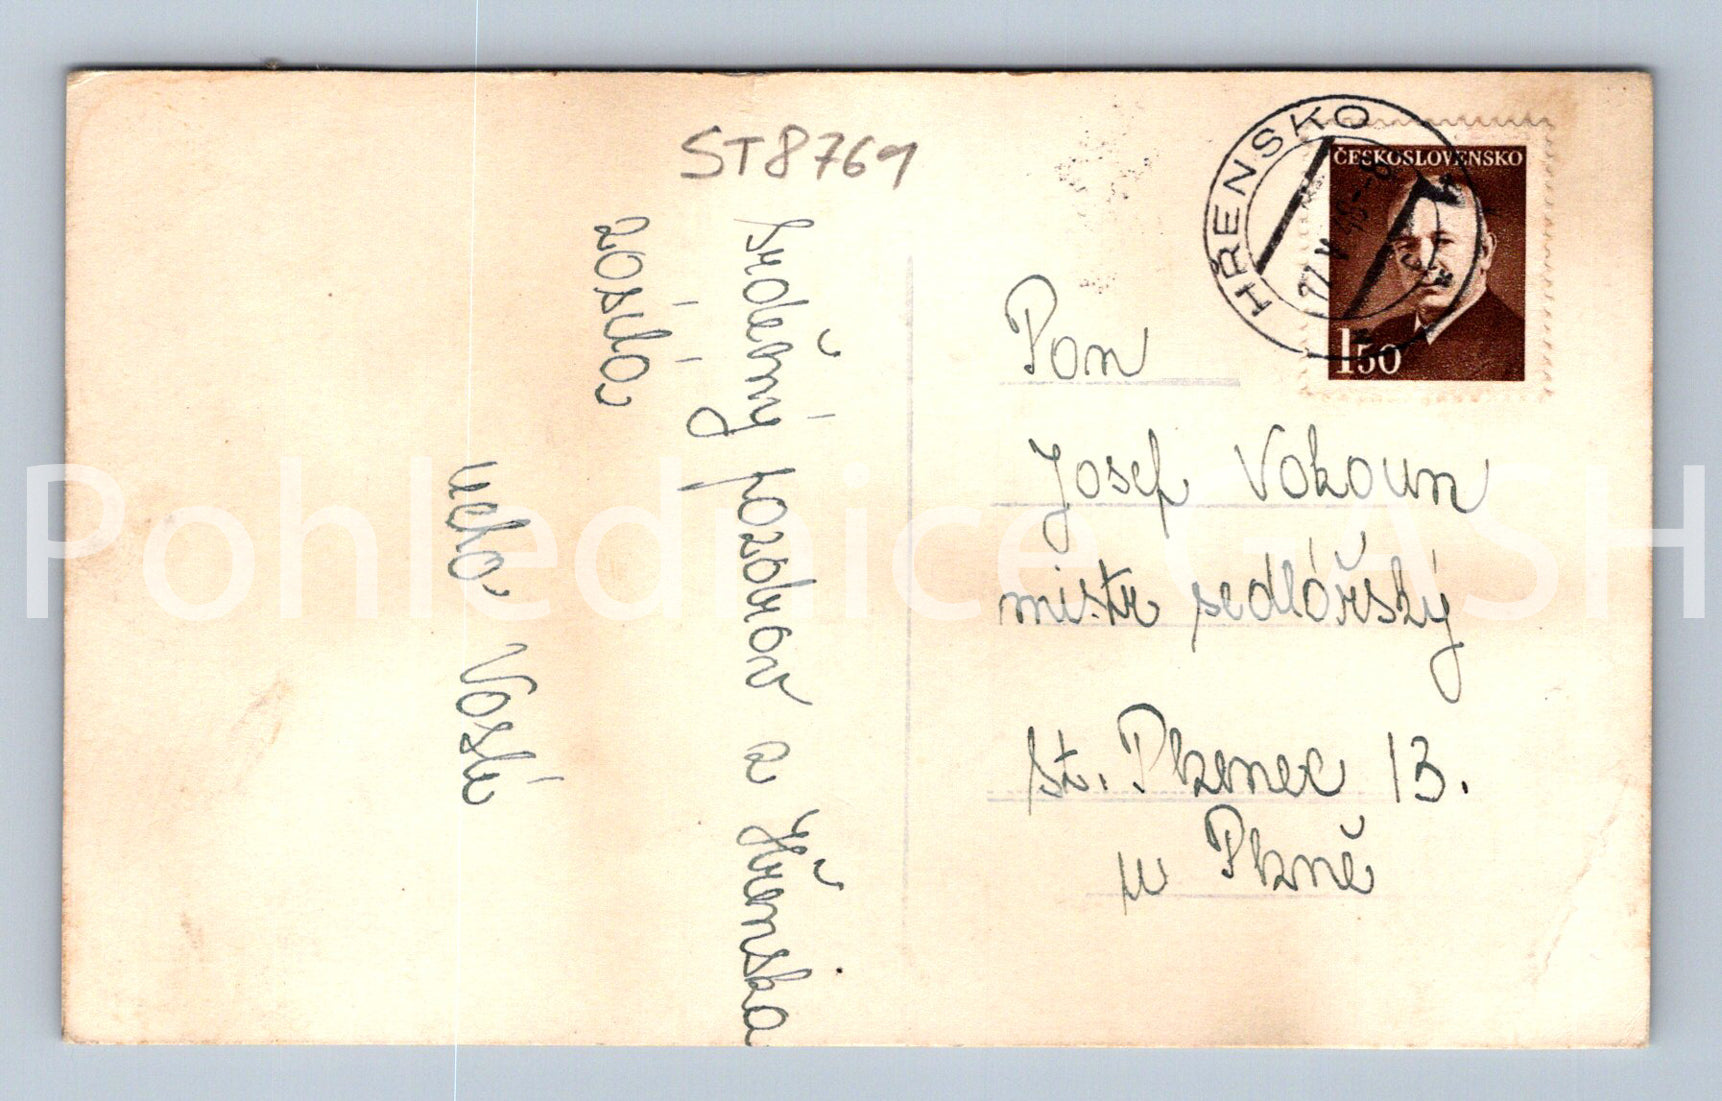 ST8769
Srdečný pozdrav z Hřenska
zasílá
Vaslí
HŘENSKO
ČESKOSLOVENSKO
150
Pan
Josef Vokoun
mistr sedlářský
St. Plzenec 13.
u Plzně
Pohlednice GASH